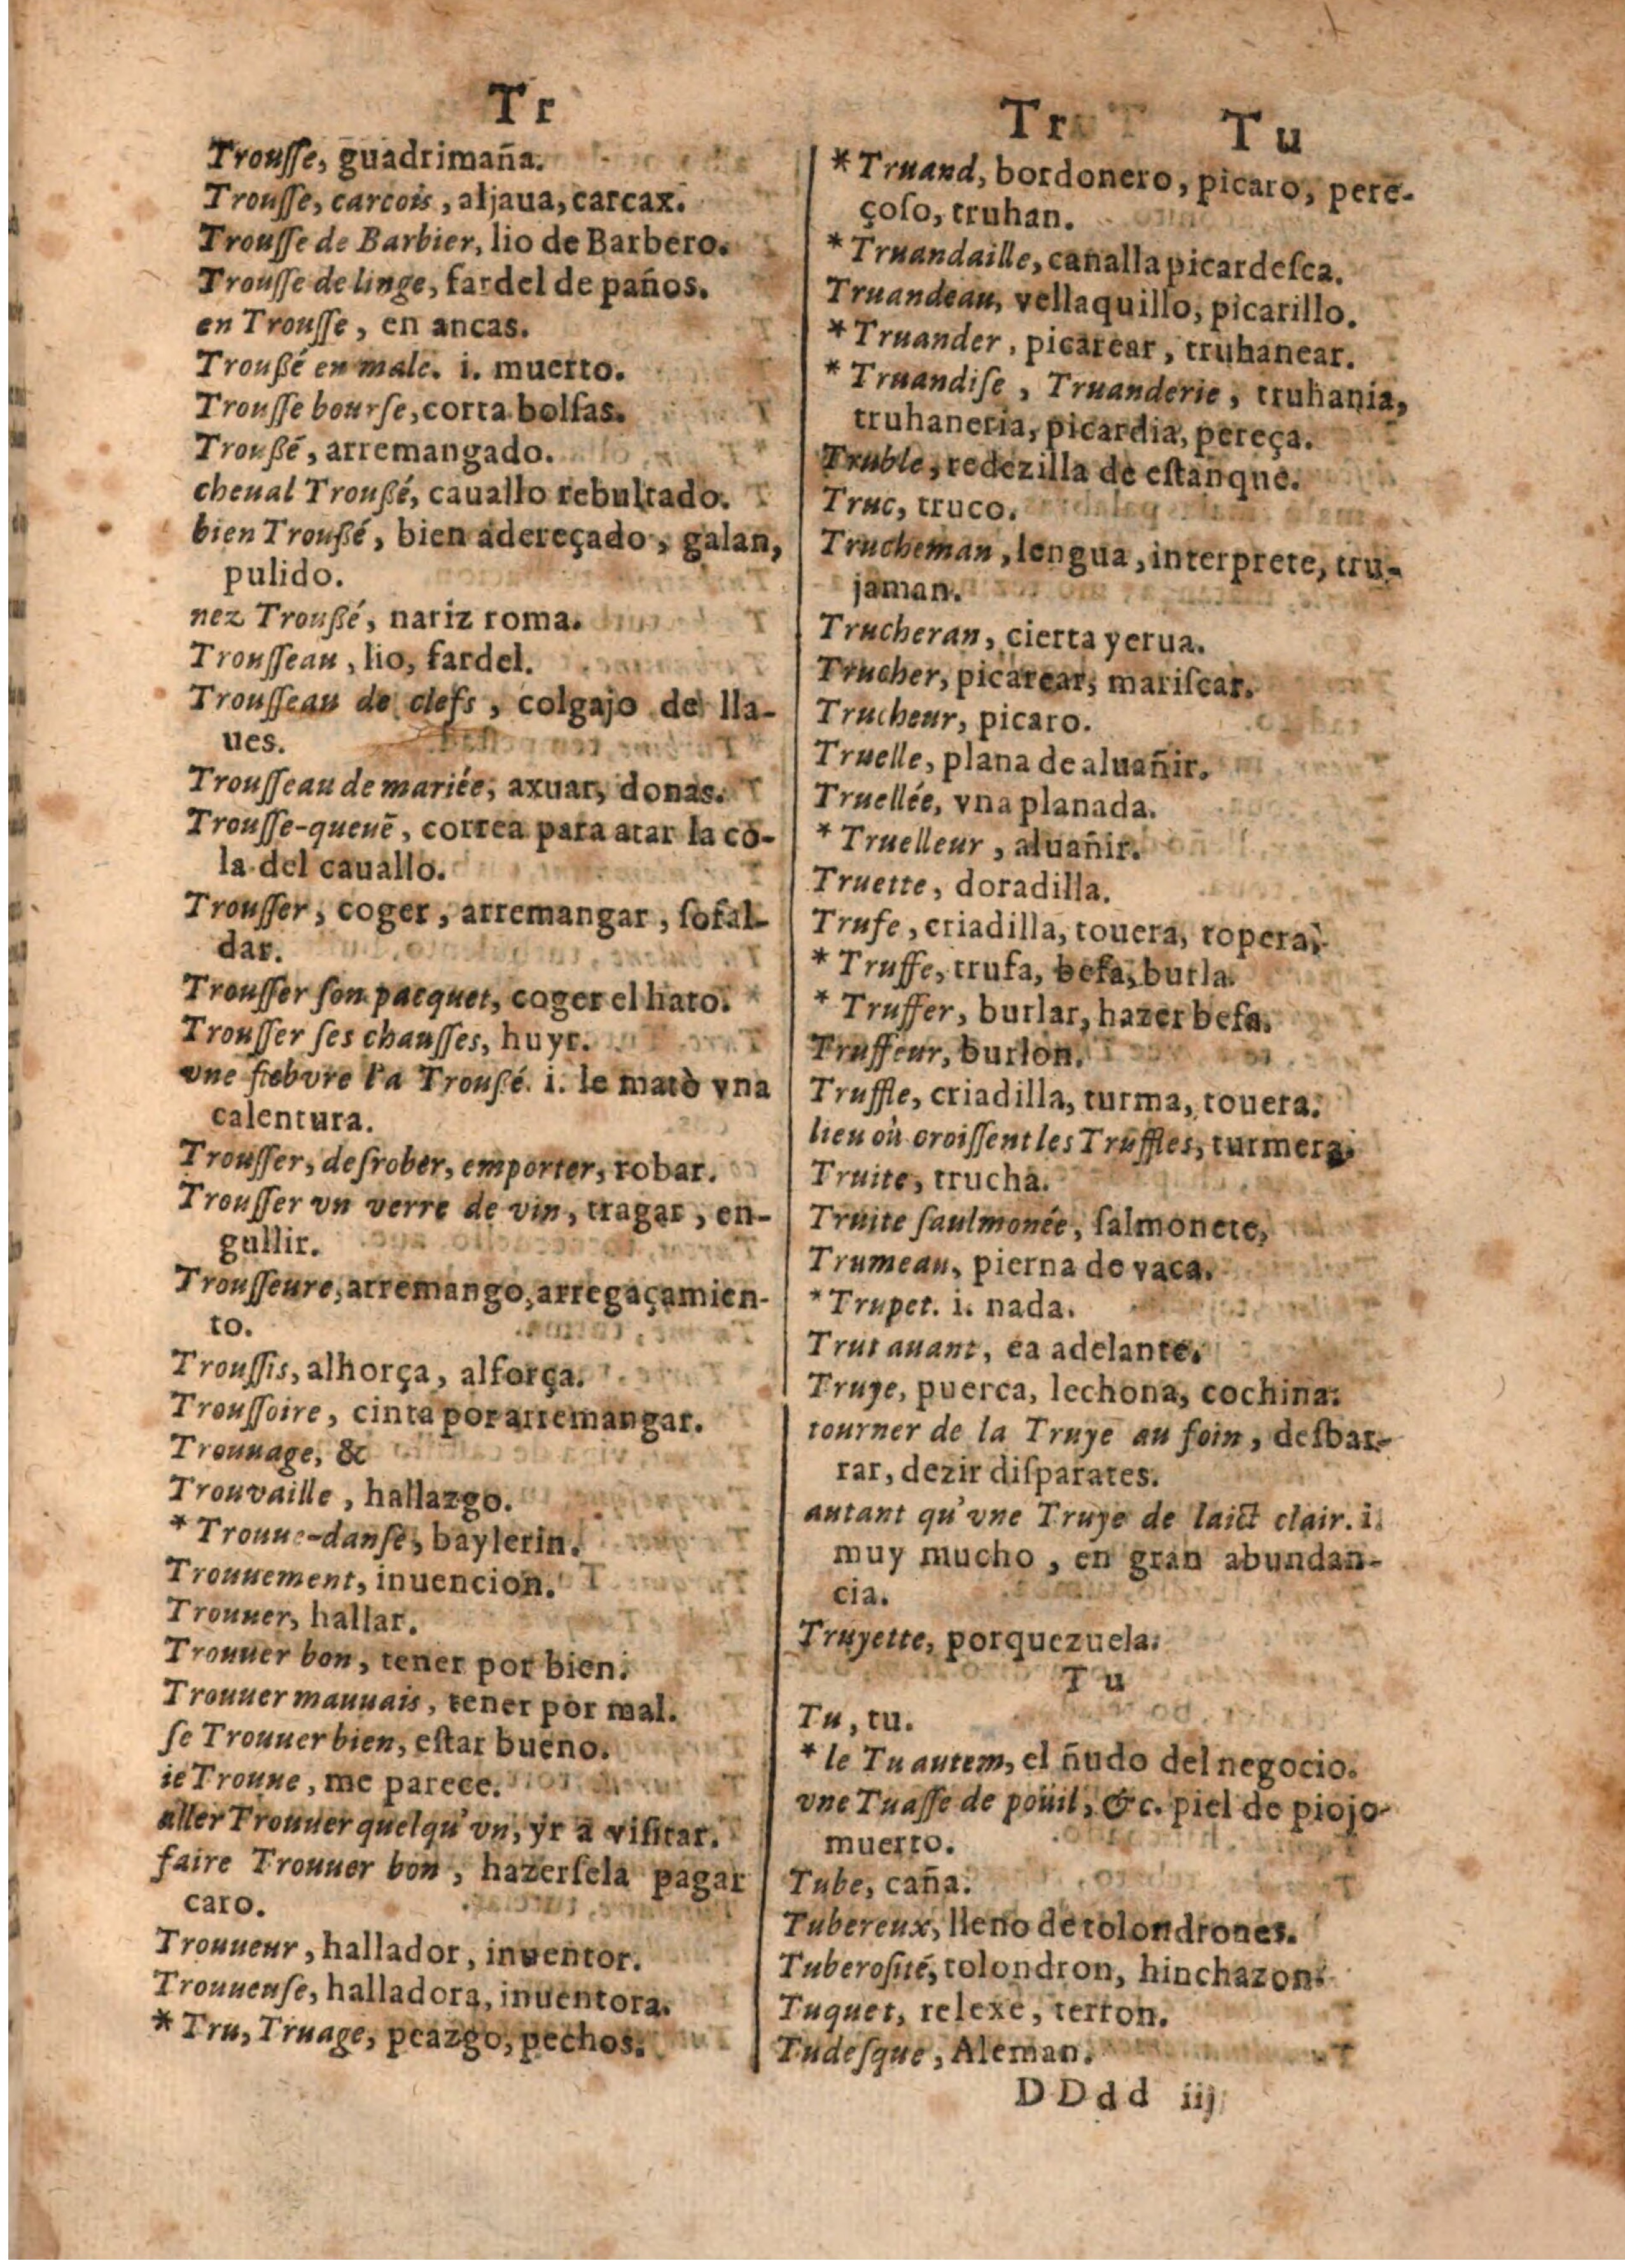 Tr
Trouſſe, guadrimaña.
Trouſſe, carcois, aljaua, carcax.
Trouſſe de Barbier, lio de Barbero.
Trouſſe de linge, fardel de paños.
en Trouſſe, en ancas.
Troußé en male. i. muerto.
Trouſſe bourſe, corta bolſas.
Troußé, arremangado.
cheual Troußé, cauallo rebultado.
bien Troußé, bien adereçado, galan,
pulido.
nez Troußé, nariz roma.
Trouſſeau, lio, fardel.
Trouſſeau de clefs, colgajo de lla-
ues.
Trouſſeau de mariée, axuar, donas.
Trouſſe-queuë, correa para atar la co-
la del cauallo.
Trouſſer, coger, arremangar, ſofal-
dar.
Trouſſer ſon pacquet, coger el hato.
Trouſſer ſes chauſſes, huyr.
vne fiebvre l'a Troußé. i. le matò vna
calentura.
Trouſſer, deſrober, emporter, robar.
Trouſſer vn verre de vin, tragar, en-
gullir.
Trouſſeure, arremango, arregaçamien-
to.
Trouſſis, alhorça, alforça.
Trouſſoire, cinta por arremangar.
Trouuage, &
Trouvaille, hallazgo.
*Trouue-danſe, baylerin.
Trouuement, inuencion.
Trouuer, hallar.
Trouuer bon, tener por bien.
Trouuer mauuais, tener por mal.
ſe Trouuer bien, eſtar bueno.
ie Trouue, me parece.
aller Trouuer quelqu'vn, yr a viſitar.
faire Trouuer bon, hazerſela pagar
caro.
Trouueur, hallador, inuentor.
Trouueuſe, halladora, inuentora.
*Tru, Truage, peazgo, pechos.
Tr Tu
*Truand, bordonero, picaro, pere-
çoſo, truhan.
*Truandaille, canalla picardeſca.
Truandeau, vellaquillo, picarillo.
*Truander, picarear, truhanear.
*Truandiſe, Truanderie, truhania,
truhaneria, picardia, pereça.
Truble, redezilla de eſtanque.
Truc, truco.
Trucheman, lengua, interprete, tru-
jaman.
Trucheran, cierta yerua.
Trucher, picarear, mariſcar.
Trucheur, picaro.
Truelle, plana de aluañir.
Truellée, vna planada.
*Truelleur, aluañir.
Truette, doradilla.
Trufe, criadilla, touera, topera,
*Truffe, trufa, befa, burla.
*Truffer, burlar, hazer befa.
Truffeur, burlon.
Truffle, criadilla, turma, touera.
lieu où croiſſent les Truffles, turmera.
Truite, trucha.
Truite ſaulmonée, ſalmonete,
Trumeau, pierna de vaca.
*Trupet. i. nada.
Trut auant, ea adelante.
Truye, puerca, lechona, cochina.
tourner de la Truye au foin, deſbar-
rar, dezir diſparates.
autant qu'vne Truye de laict clair. i.
muy mucho, en gran abundan-
cia.
Truyette, porquezuela.
Tu
Tu, tu.
*le Tu autem, el ñudo del negocio.
vne Tuaſſe de poüil, &c. piel de piojo
muerto.
Tube, caña.
Tubereux, lleno de tolondrones.
Tuberoſité, tolondron, hinchazon.
Tuquet, relexe, terron.
Tudeſque, Aleman.
DDdd iij